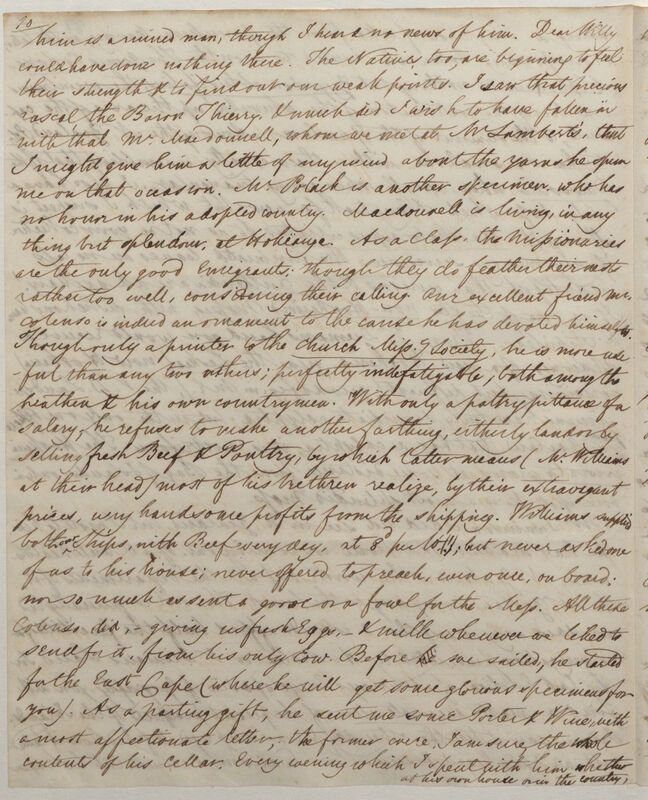 90
him as a ruined man, though I heard no news of him. Dear Willy
could have done nothing there. The Natives too, are beginning to feel
their strength & to find out our weak points. I saw that precious
rascal the Baron Thierry, & much did I wish to have fallen in
with that Mr. Macdonnell, whom we met at Mr Lamberts, that
I might give him a little of my mind about the yarns he spun
me on that occasion. Mr Polack is another specimen, who has
no honor in his adopted country. Macdonnell is living, in any
thing but splendour, at Hokianga. As a class, the Missionaries
are the only good Emigrants: though they do feather their nests
rather too well, considering their calling. Our excellent friend Mr.
Colenso is indeed an ornament to the cause he has devoted himself to.
Though only a printer to the Church Missy Society, he is more use
-ful than any two others; perfectly indefatigable, both among the
heathen & his own countrymen. With only a paltry pittance of a
salary, he refuses to make another farthing, either by land or by
selling fresh Beef & Poultry, by which latter means (Mr. Williams
at their head) most of his brethren realize, by their extravagant
prices, very handsome profits from the shipping. Williams supplied
both our ships, with Beef every day, at 8d per lb!!; but never asked one
of us to his house; never offered to preach, even once, on board;
nor so much as sent a goose or a fowl for the Mess. All these
Colenso did, - giving us fresh Eggs, - & milk whenever we liked to
send for it, from his only cow. Before we sailed, he started
for the East Cape (where he will get some glorious specimens for
you). As a parting gift, he sent me some Porter & Wine, with
a most affectionate letter; the former were, I am sure, the whole
contents of his cellar. Every evening which I spent with him whether
at his own house or in the country,